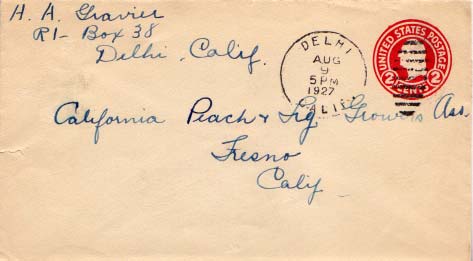 H. A. Gravier
R1- Box 38
Delhi, Calif.
DELHI
AUG
9
5 PM
1927
CALIF.
UNITED STATES POSTAGE
2 2
California Peach & Fig Growers Ass.
Fresno
Calif